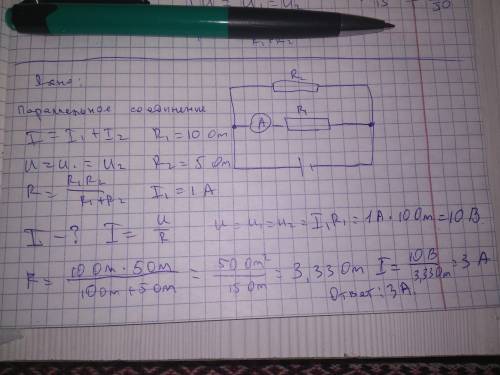 Дано:
Параллельное соединение
I = I₁ + I₂ R₁ = 10 Ом
U = U₁ = U₂ R₂ = 5 Ом
R = R₁R₂ / R₁+R₂ I₁ = 1 А
I - ? I = U / R U = U₁ = U₂ = I₁R₁ = 1А · 10Ом = 10В.
R = 10Ом · 5Ом / 10Ом + 5Ом = 50Ом² / 15Ом = 3,33Ом I = 10В / 3,33Ом = 3 А
Ответ: 3А.
R₂
A R₁